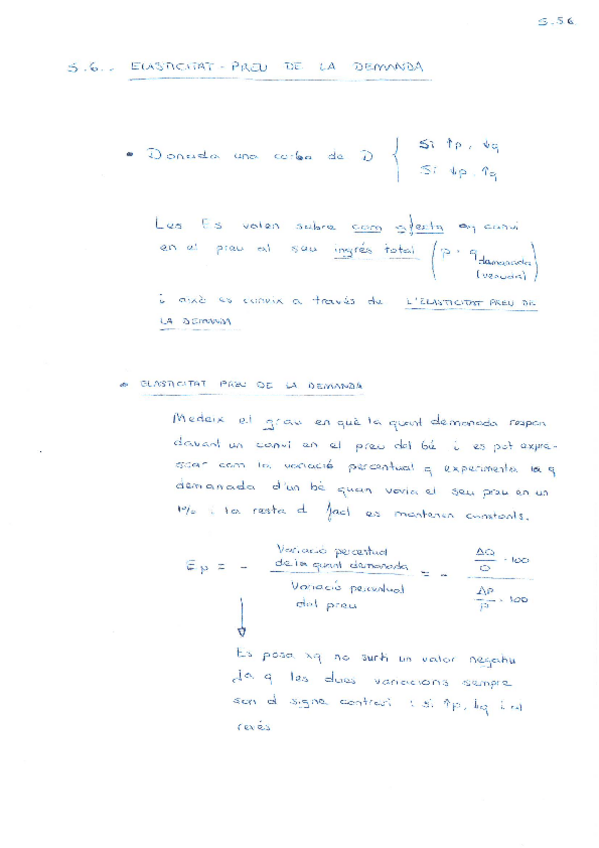 5.56
5.6.- ELASTICITAT-PREU DE LA DEMANDA
• Donada una corba de D { Si ↑p, ↓q
Si ↓p, ↑q
Les Es volen sabre com afecta un canvi
en el preu al seu ingrés total (p · q demanada
(venuda))
i això es coneix a través de L'ELASTICITAT PREU DE
LA DEMANDA
• ELASTICITAT PREU DE LA DEMANDA
Medeix el grau en què la quant demanada respon
davant un canvi en el preu del bé i es pot expre-
sar com la variació percentual q experimenta la q
demanada d'un bé quan varia el seu preu en un
1%, i la resta d fact es mantenen constants.
Ep = - Variació percentual de la quant demanada / Variació percentual del preu = - ΔQ/Q · 100 / ΔP/P · 100
↓
Es posa xq no surti un valor negatiu
Ja q les dues variacions sempre
són d signe contrari : si ↑p, ↓q i al
revés